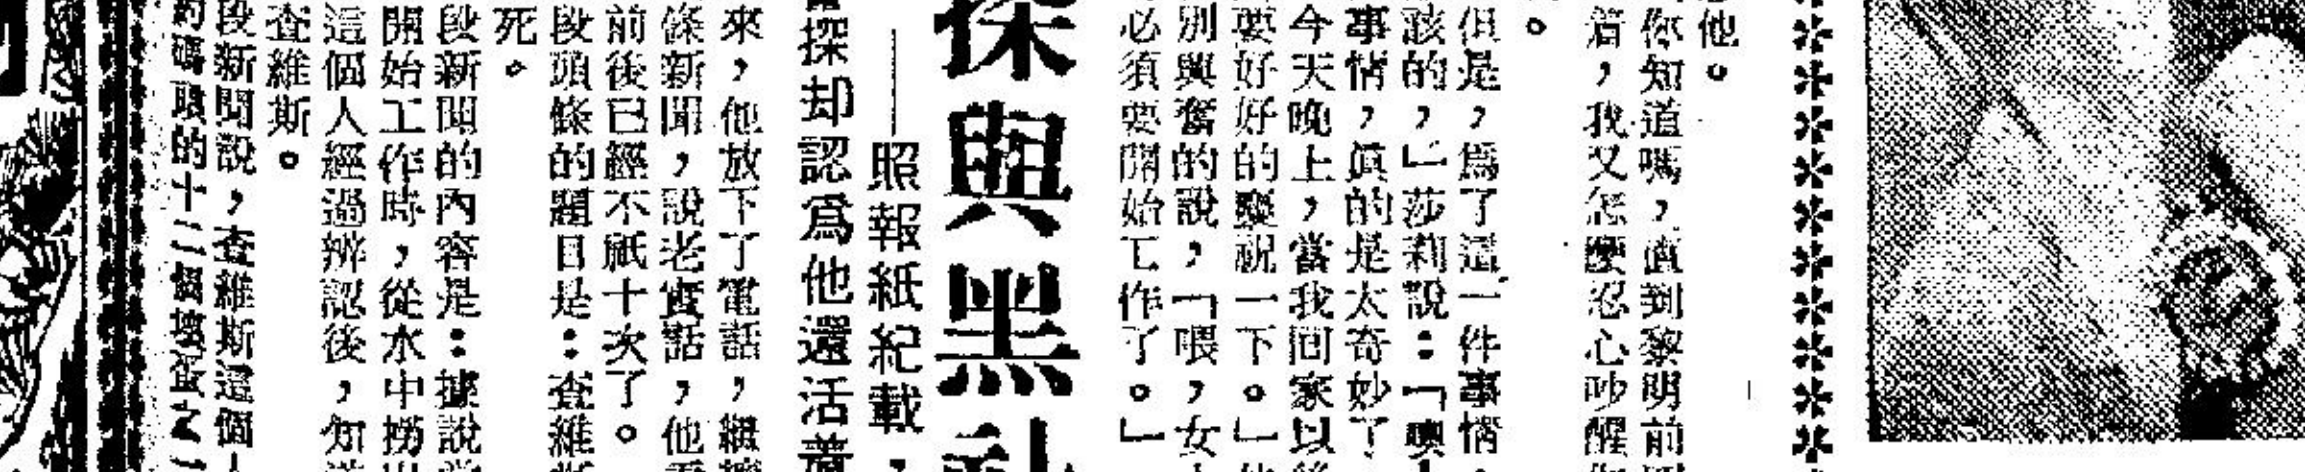 他。
你知道嗎，直到黎明前
着，我又怎麼忍心吵醒
。
但是，爲了這一件事情，
該的，」莎莉說：「噢
事情，眞的是太奇妙了
今天晚上，當我回家以後
要好好的慶祝一下。」
別興奮的說，「喂，女
必須要開始工作了。」
探與黑社
——照報紙紀載，
探却認爲他還活着
來，他放下了電話，繼續
條新聞，說老實話，他
前後已經不祇十次了。
段頭條的題目是：查維斯
死。
段新聞的內容是：據說當
開始工作時，從水中撈出
這個人經過辨認後，知道
查維斯。
段新聞說，查維斯這個人
的碼頭的十二個壞蛋之一